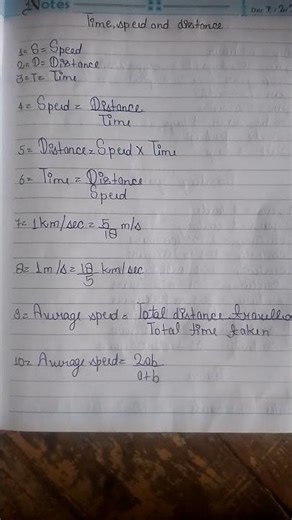 Notes
Time, speed and distance
1= S= Speed
2= D= Distance
3= T= Time
4= Speed = Distance
Time
5= Distance = Speed x Time
6= Time = Distance
Speed
7= 1km/sec = 5/18 m/s
8= 1m/s = 18/5 km/sec
9= Average speed = Total distance travelled
Total time taken
10= Average speed = 2ab
a+b